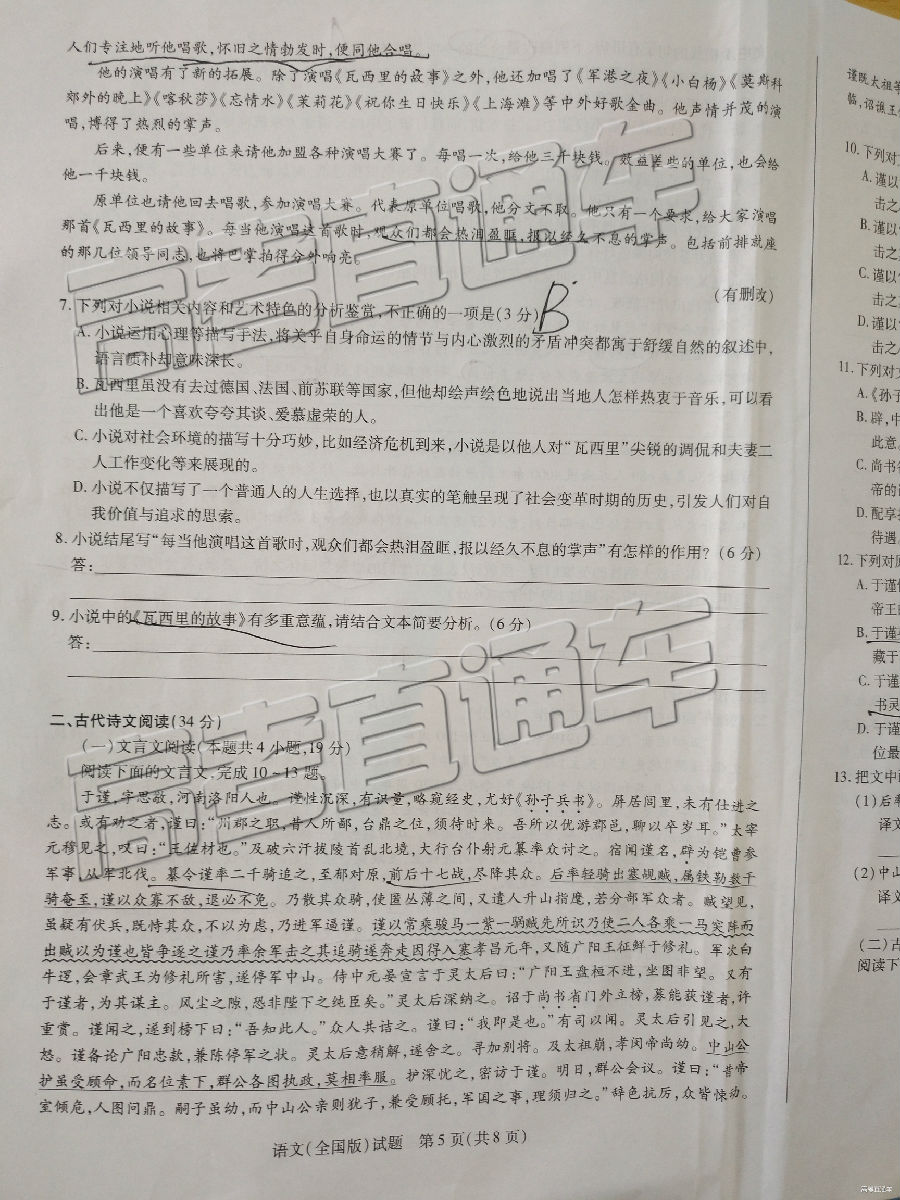 人们专注地听他唱歌,怀旧之情勃发时,便同他合唱。
他的演唱有了新的拓展。除了演唱《瓦西里的故事》之外,他还加唱了《军港之夜》《小白杨》《莫斯科
郊外的晚上》《喀秋莎》《忘情水》《茉莉花》《祝你生日快乐》《上海滩》等中外好歌金曲。他声情并茂的演
唱,博得了热烈的掌声。
后来,便有一些单位来请他加盟各种演唱大赛了。每唱一次,给他三千块钱。效益差些的单位,也会给
他一千块钱。
原单位也请他回去唱歌,参加演唱大赛。代表原单位唱歌,他分文不取。他只有一个要求,给大家演唱
那首《瓦西里的故事》。每当他演唱这首歌时,观众们都会热泪盈眶,报以经久不息的掌声。包括前排就座
的那几位领导同志,也将巴掌拍得分外响亮。
(有删改)
7. 下列对小说相关内容和艺术特色的分析鉴赏,不正确的一项是(3 分) B
A. 小说运用心理等描写手法,将关乎自身命运的情节与内心激烈的矛盾冲突都寓于舒缓自然的叙述中,
语言质朴却意味深长。
B. 瓦西里虽没有去过德国、法国、前苏联等国家,但他却绘声绘色地说出当地人怎样热衷于音乐,可以看
出他是一个喜欢夸夸其谈、爱慕虚荣的人。
C. 小说对社会环境的描写十分巧妙,比如经济危机到来,小说是以他人对“瓦西里”尖锐的调侃和夫妻二
人工作变化等来展现的。
D. 小说不仅描写了一个普通人的人生选择,也以真实的笔触呈现了社会变革时期的历史,引发人们对自
我价值与追求的思索。
8. 小说结尾写“每当他演唱这首歌时,观众们都会热泪盈眶,报以经久不息的掌声”有怎样的作用? (6 分)
答:
9. 小说中的《瓦西里的故事》有多重意蕴,请结合文本简要分析。(6 分)
答:
二、古代诗文阅读(34 分)
(一)文言文阅读(本题共 4 小题,19 分)
阅读下面的文言文,完成 10~13 题。
于谨,字思敬,河南洛阳人也。谨性沉深,有识量,略窥经史,尤好《孙子兵书》。屏居闾里,未有仕进之
志。或有劝之者,谨曰:“州郡之职,昔人所鄙,台鼎之位,须待时来。吾所以优游郡邑,聊以卒岁耳。”太宰
元穆见之,叹曰:“王佐材也。”及破六汗拔陵首乱北境,大行台仆射元纂率众讨之。宿闻谨名,辟为铠曹参
军事,从军北伐。纂令谨率二千骑追之,至郁对原,前后十七战,尽降其众。后率轻骑出塞觇贼,属铁勒数千
骑奄至,谨以众寡不敌,退必不免。乃散其众骑,使匿丛薄之间,又遣人升山指麾,若分部军众者。贼望见,
虽疑有伏兵,既恃其众,不以为虑,乃进军逼谨。谨以常乘骏马一紫一騧贼先所识乃使二人各乘一马突阵而
出贼以为谨也皆争逐之谨乃率余军击之其追骑遂奔走因得入塞孝昌元年,又随广阳王征鲜于修礼。军次白
牛逻,会章武王为修礼所害,遂停军中山。侍中元晏宣言于灵太后曰:“广阳王盘桓不进,坐图非望。又有
于谨者,为其谋主。风尘之隙,恐非陛下之纯臣矣。”灵太后深纳之。诏于尚书省门外立榜,募能获谨者,许
重赏。谨闻之,遂到榜下曰:“吾知此人。”众人共诘之。谨曰:“我即是也。”有司以闻。灵太后引见之,大
怒。谨备论广阳忠款,兼陈停军之状。灵太后意稍解,遂舍之。寻加别将。及太祖崩,孝闵帝尚幼。中山公
护虽受顾命,而名位素下,群公各图执政,莫相率服。护深忧之,密访于谨。明日,群公会议。谨曰:“昔帝
室倾危,人图问鼎。嗣子虽幼,而中山公亲则犹子,兼受顾托,军国之事,理须归之。”辞色抗厉,众皆悚动。
语文(全国版)试题 第 5 页(共 8 页)
谨既太祖等
临,诏谯王
10. 下列对文
A. 谨以
击之
B. 谨以
击之
C. 谨以
击之
D. 谨以
击之
11. 下列对文
A.《孙子
B. 辟,中
此意。
C. 尚书
帝的
D. 配享
待遇。
12. 下列对原
A. 于谨
帝王
B. 于谨
藏于
C. 于谨
书灵
D. 于谨
位最
13. 把文中画
(1)后率
译文
(2)中山
译文
(二)古
阅读下
高考直通车
高考直通车